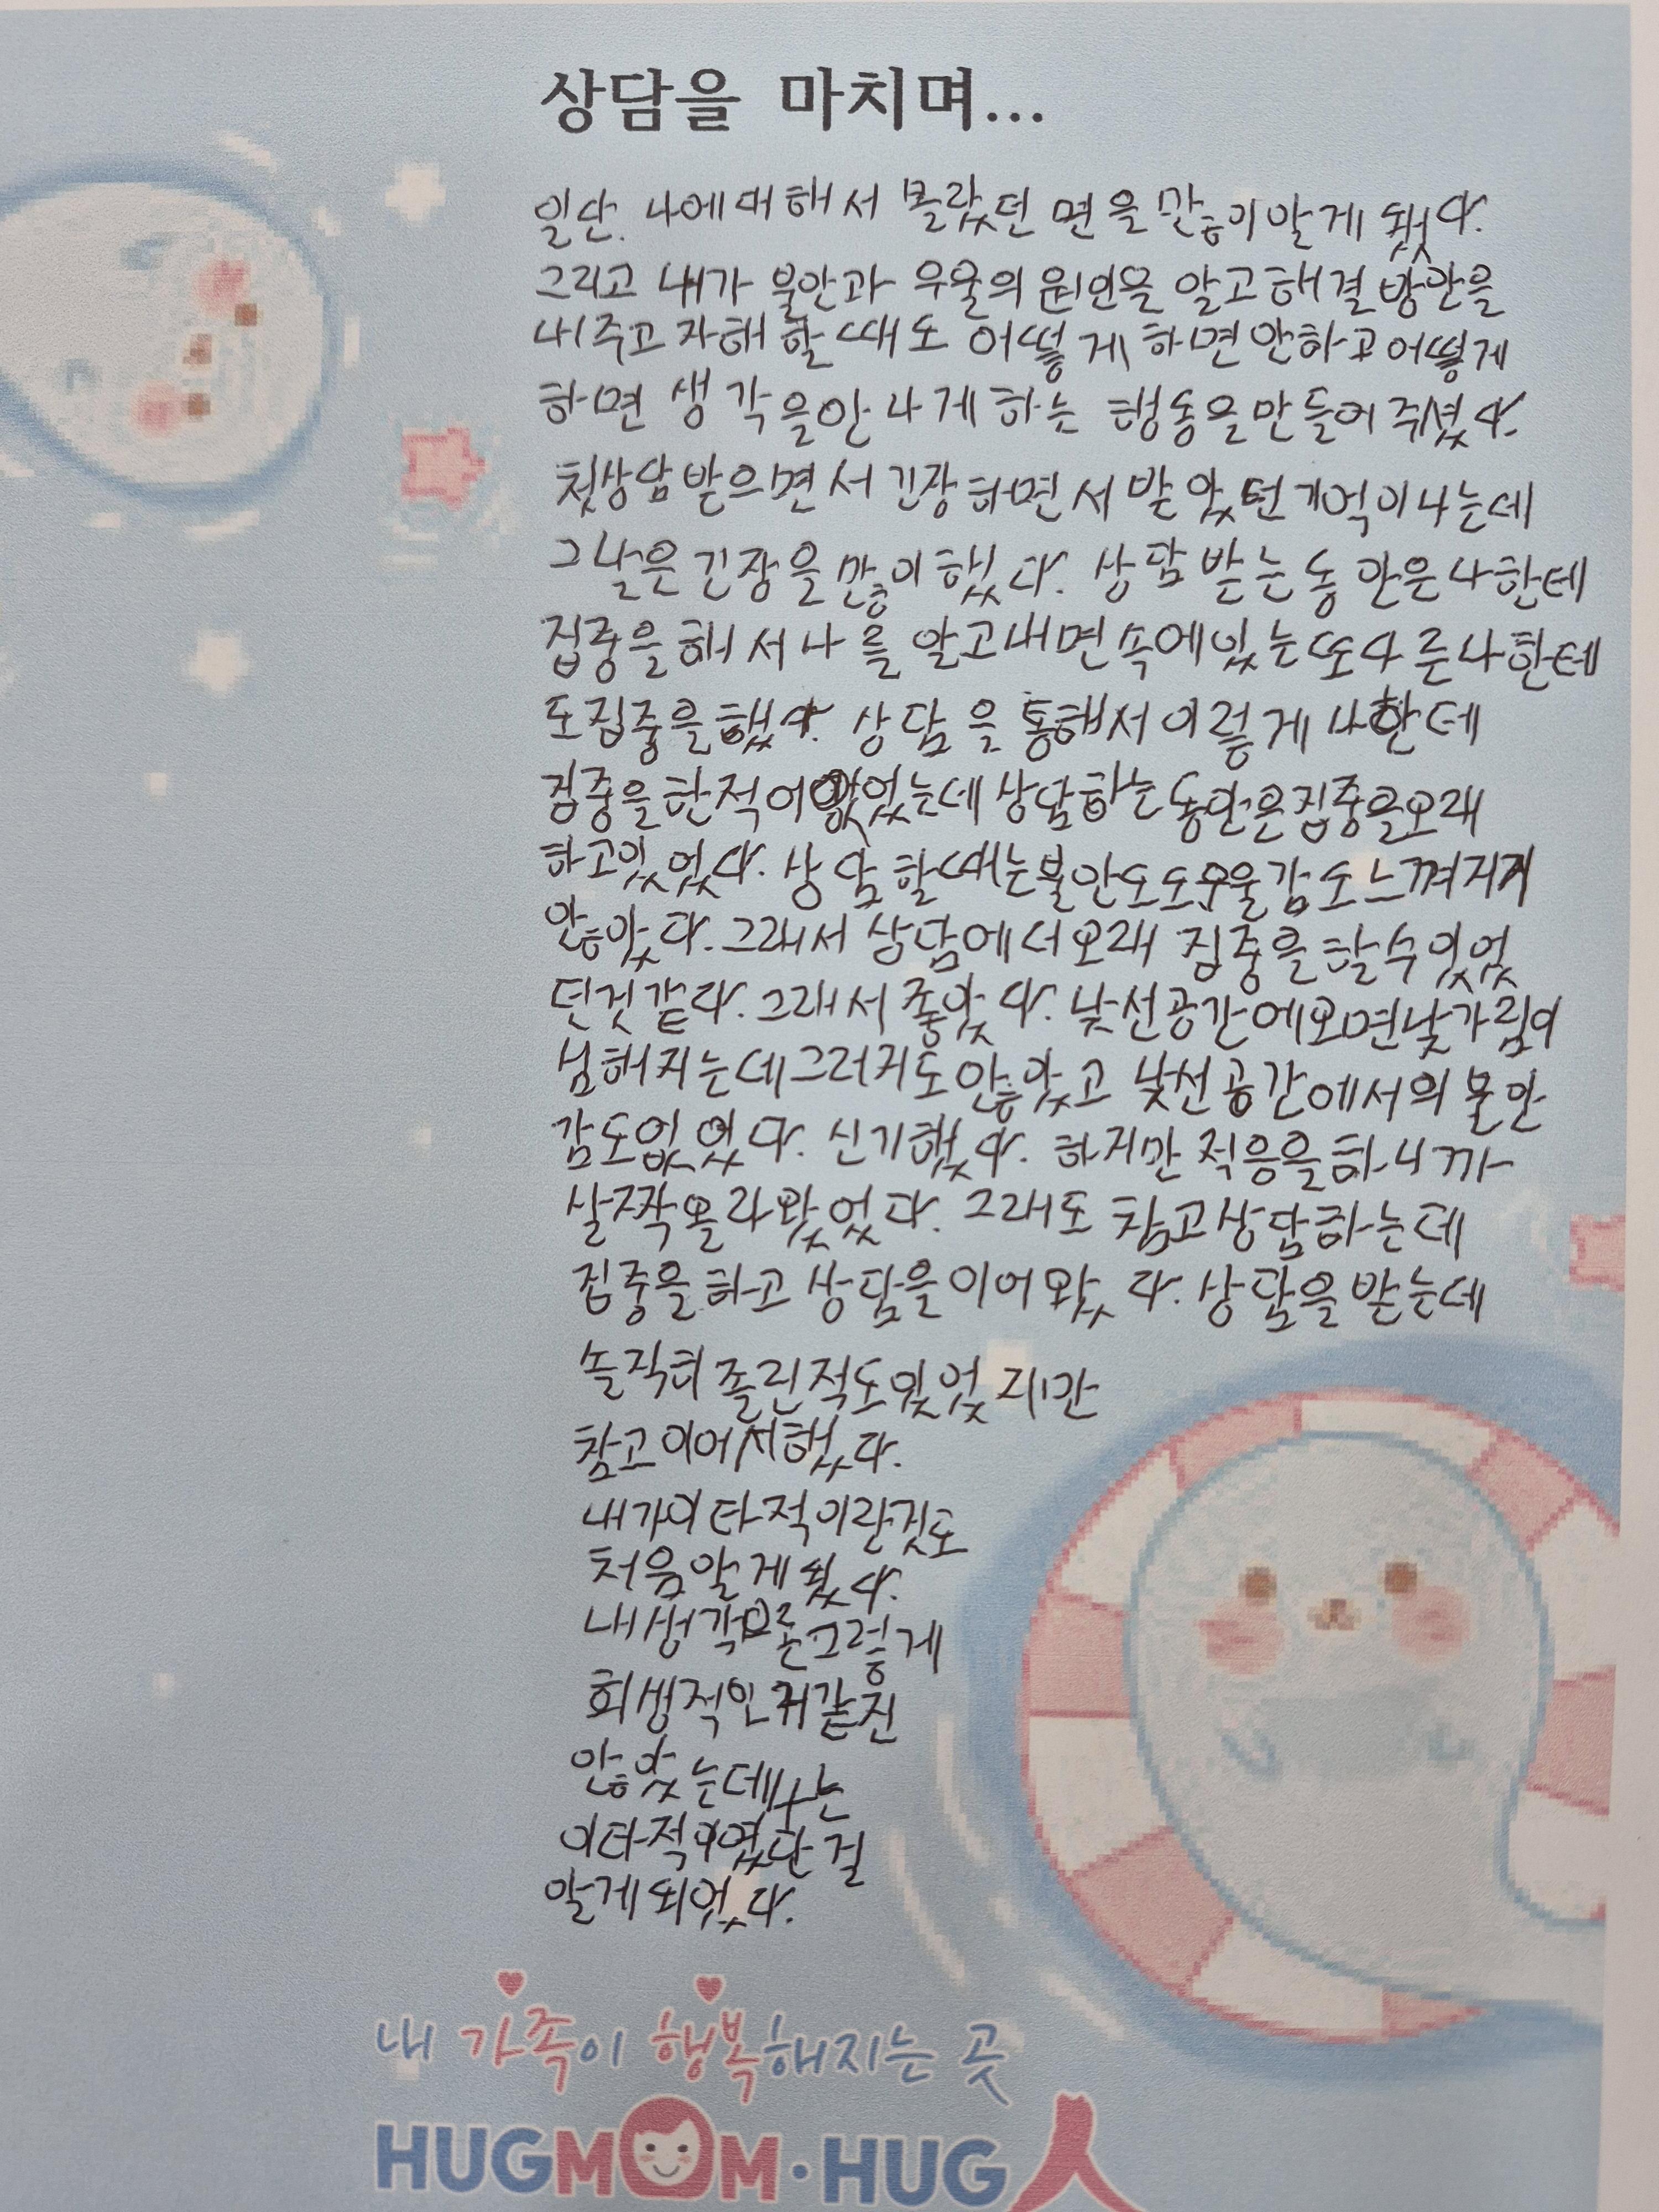 상담을 마치며...
일단. 나에대해서 몰랐던 면을 많이 알게 됐다.
그리고 내가 불안과 우울의 원인을 알고 해결 방안을
내주고 자해 할 때도 어떻게 하면 안하고 어떻게
하면 생각을 안 나게 하는 행동을 만들어 주셨다.
첫상담 받으면서 긴장하면서 받았던 기억이 나는데
그날은 긴장을 많이 했다. 상담 받는 동안은 나한테
집중을 해서 나를 알고 내면 속에 있는 또다른 나한테
도 집중을 했다. 상담을 통해서 이렇게 나한데
집중을 한적이 없었는데 상담하는 동안은 집중을 오래
하고있었다. 상담할때는 불안도도 우울감도 느껴지지
않았다. 그래서 상담에서 오래 집중을 할수있었
던것같다. 그래서 좋았다. 낯선공간에오면 낯가림이
심해지는데 그러지도 않았고 낯선 공간에서의 불안
감도없었다. 신기했다. 하지만 적응을 하니까
살짝 올라왔었다. 그래도 참고 상담하는데
집중을 하고 상담을 이어왔다. 상담을 받는데
솔직히 졸린적도있었지만
참고 이어서했다.
내가 이타적이란것도
처음 알게 됐다.
내 생각으론 그렇게
희생적인거 같진
않았는데 나는
이타적이였단걸
알게 되었다.
내 가족이 행복해지는 곳
HUGMOM·HUG人